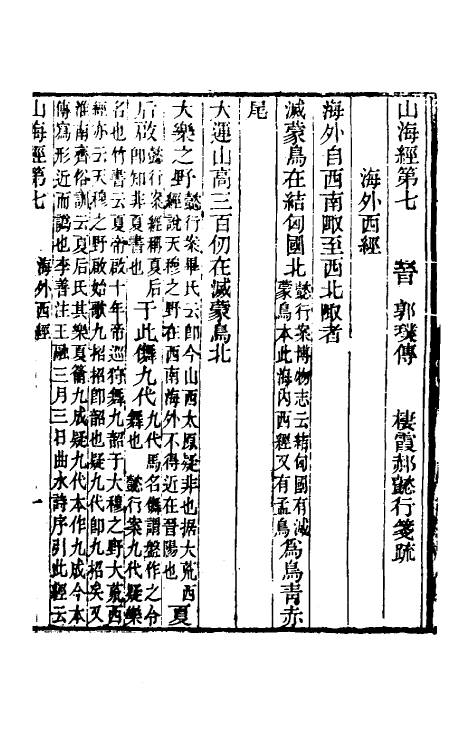 山海經第七　晉　郭璞傳　棲霞郝懿行箋疏
海外西經
海外自西南陬至西北陬者
滅蒙鳥在結匈國北懿行案博物志云結匈國有滅蒙鳥本此海內西經又有孟鳥為鳥青赤
尾
大運山高三百仞在滅蒙鳥北
大樂之野懿行案畢氏云即今山西太原疑非也据大荒西經說天穆之野在西南海外不得近在晉陽也夏
后啟懿行案經稱夏后即知非夏書也于此儛九代九代馬名儛謂盤作之令舞也　懿行案九代疑樂
名也竹書云夏帝啟十年帝巡狩舞九韶于大穆之野大荒西
經亦云天穆之野啟始歌九招招即韶也疑九代即九招矣又
淮南齊俗訓云夏后氏其樂夏籥九成疑九代本作九成今本
傳寫形近而譌也李善注王融三月三日曲水詩序引此經云
山海經第七　海外西經　一